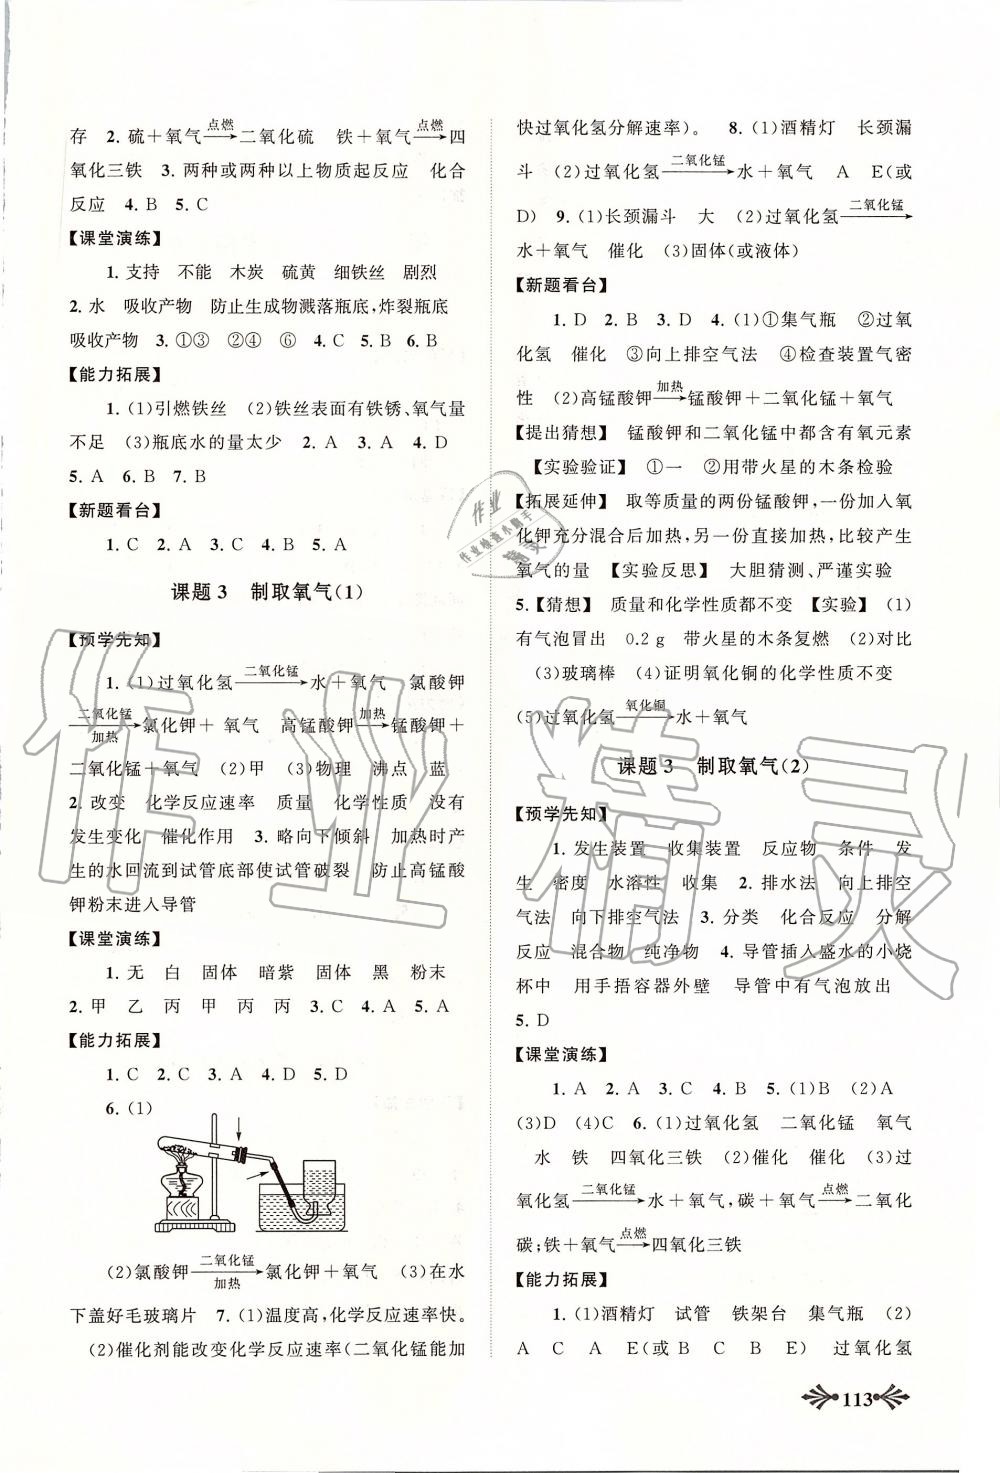 存　2. 硫＋氧气 点燃→ 二氧化硫　铁＋氧气 点燃→ 四
氧化三铁　3. 两种或两种以上物质起反应　化合
反应　4. B　5. C
【课堂演练】
1. 支持　不能　木炭　硫黄　细铁丝　剧烈
2. 水　吸收产物　防止生成物溅落瓶底,炸裂瓶底
吸收产物　3. ①③　②④　⑥　4. C　5. B　6. B
【能力拓展】
1. (1)引燃铁丝　(2)铁丝表面有铁锈、氧气量
不足　(3)瓶底水的量太少　2. A　3. A　4. D
5. A　6. B　7. B
【新题看台】
1. C　2. A　3. C　4. B　5. A
课题 3　制取氧气(1)
【预学先知】
1. (1)过氧化氢 二氧化锰→ 水＋氧气　氯酸钾
二氧化锰→加热 氯化钾＋ 氧气　高锰酸钾 加热→ 锰酸钾＋
二氧化锰＋氧气　(2)甲　(3)物理　沸点　蓝
2. 改变　化学反应速率　质量　化学性质　没有
发生变化　催化作用　3. 略向下倾斜　加热时产
生的水回流到试管底部使试管破裂　防止高锰酸
钾粉末进入导管
【课堂演练】
1. 无　白　固体　暗紫　固体　黑　粉末
2. 甲　乙　丙　甲　丙　丙　3. C　4. A　5. A
【能力拓展】
1. C　2. C　3. A　4. D　5. D
6. (1)
(2)氯酸钾 二氧化锰→加热 氯化钾＋氧气　(3)在水
下盖好毛玻璃片　7. (1)温度高,化学反应速率快。
(2)催化剂能改变化学反应速率(二氧化锰能加
快过氧化氢分解速率)。　8. (1)酒精灯　长颈漏
斗　(2)过氧化氢 二氧化锰→ 水＋氧气　A　E(或
D)　9. (1)长颈漏斗　大　(2)过氧化氢 二氧化锰→
水＋氧气　催化　(3)固体(或液体)
【新题看台】
1. D　2. B　3. D　4. (1)①集气瓶　②过氧
化氢　催化　③向上排空气法　④检查装置气密
性　(2)高锰酸钾 加热→ 锰酸钾＋二氧化锰＋氧气
【提出猜想】　锰酸钾和二氧化锰中都含有氧元素
【实验验证】　①一　②用带火星的木条检验
【拓展延伸】　取等质量的两份锰酸钾,一份加入氧
化钾充分混合后加热,另一份直接加热,比较产生
氧气的量　【实验反思】　大胆猜测、严谨实验
5.【猜想】　质量和化学性质都不变　【实验】　(1)
有气泡冒出　0.2 g　带火星的木条复燃　(2)对比
(3)玻璃棒　(4)证明氧化铜的化学性质不变
(5)过氧化氢 氧化铜→ 水＋氧气
课题 3　制取氧气(2)
【预学先知】
1. 发生装置　收集装置　反应物　条件　发
生　密度　水溶性　收集　2. 排水法　向上排空
气法　向下排空气法　3. 分类　化合反应　分解
反应　混合物　纯净物　4. 导管插入盛水的小烧
杯中　用手捂容器外壁　导管中有气泡放出
5. D
【课堂演练】
1. A　2. A　3. C　4. B　5. (1)B　(2)A
(3)D　(4)C　6. (1)过氧化氢　二氧化锰　氧气
水　铁　四氧化三铁　(2)催化　催化　(3)过
氧化氢 二氧化锰→ 水＋氧气,碳＋氧气 点燃→ 二氧化
碳;铁＋氧气 点燃→ 四氧化三铁
【能力拓展】
1. (1)酒精灯　试管　铁架台　集气瓶　(2)
A　C　A　E(或A　B　C　B　E)　过氧化氢
113
作业精灵
作业
作业检查小助手
精灵